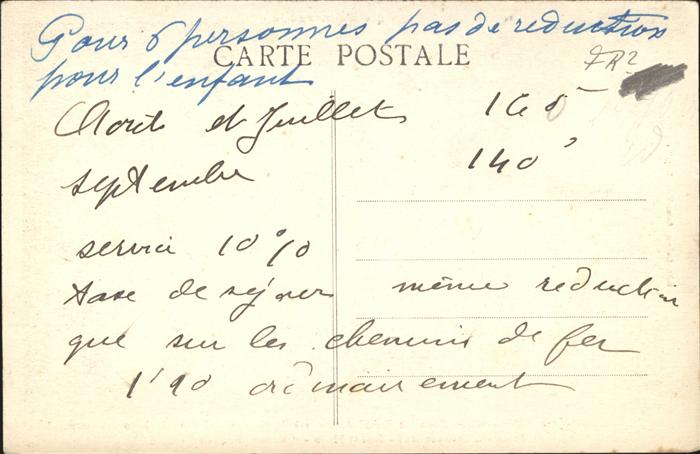 Pour 6 personnes pas de reduction
CARTE POSTALE
pour l'enfant
Aout et Juillet 165
septembre 140
service 10%
taxe de séjour même reduction
que sur les chemins de fer
1'90 ordinairement